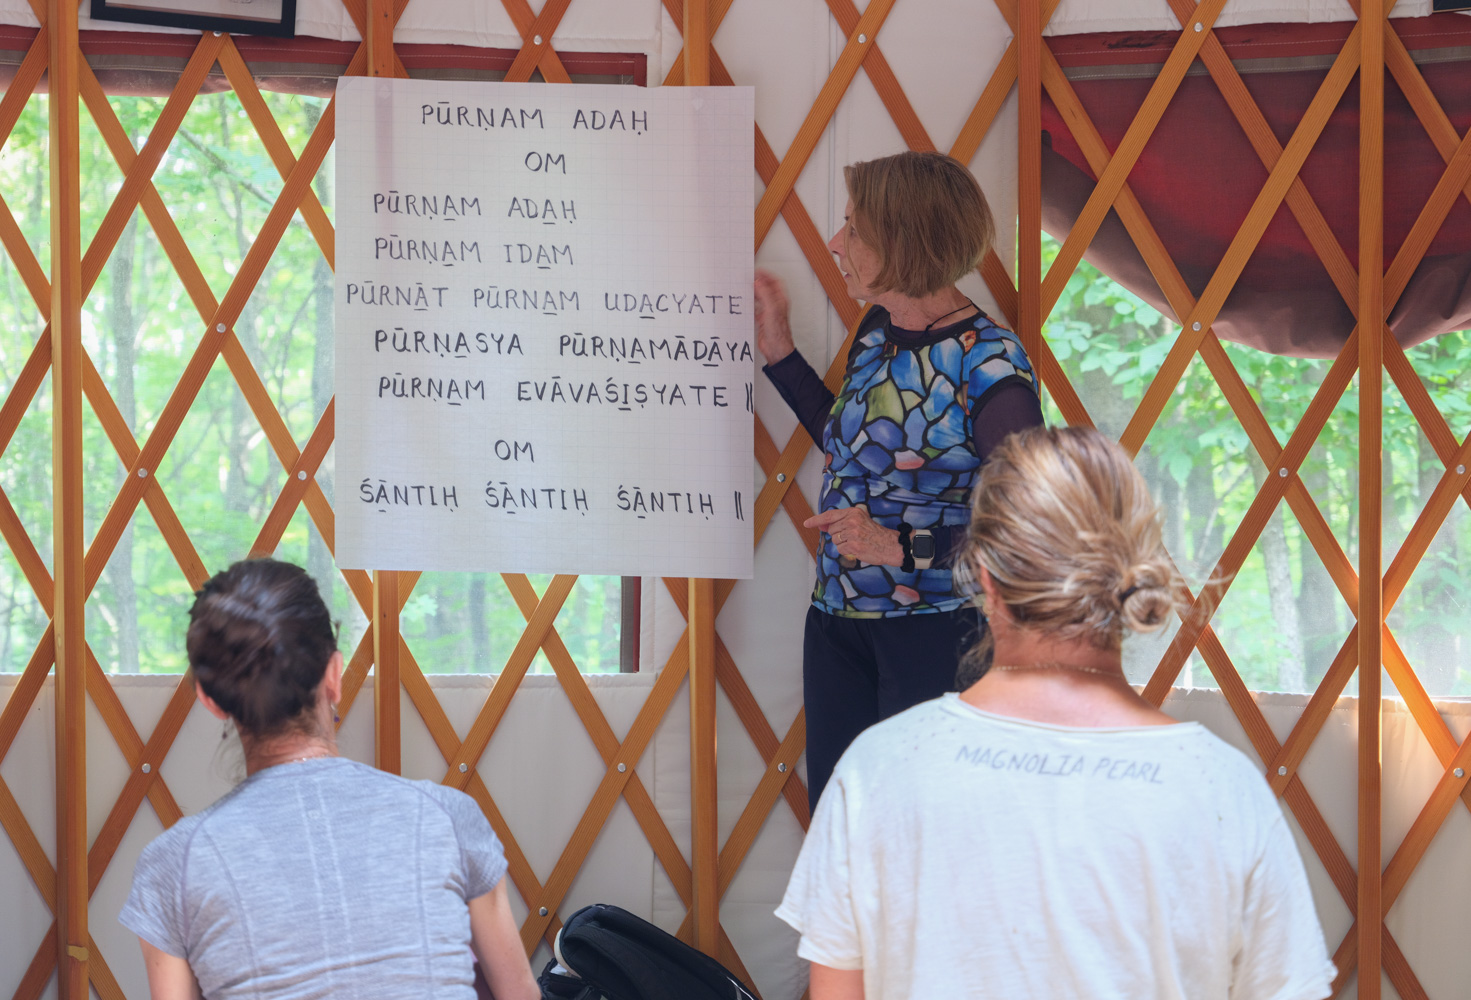 PŪRṆAM ADAḤ
OM
PŪRṆA̱M ADA̱Ḥ
PŪRṆA̱M IDA̱M
PŪRṆĀ̱T PŪRṆA̱M UDA̱CYATE
PŪRṆA̱SYA PŪRṆA̱MĀDĀ̱YA
PŪRṆA̱M EVĀVAŚI̱ṢYATE ||
OM
ŚĀ̱NTIḤ ŚĀ̱NTIḤ ŚĀ̱NTIḤ ||
MAGNOLIA PEARL